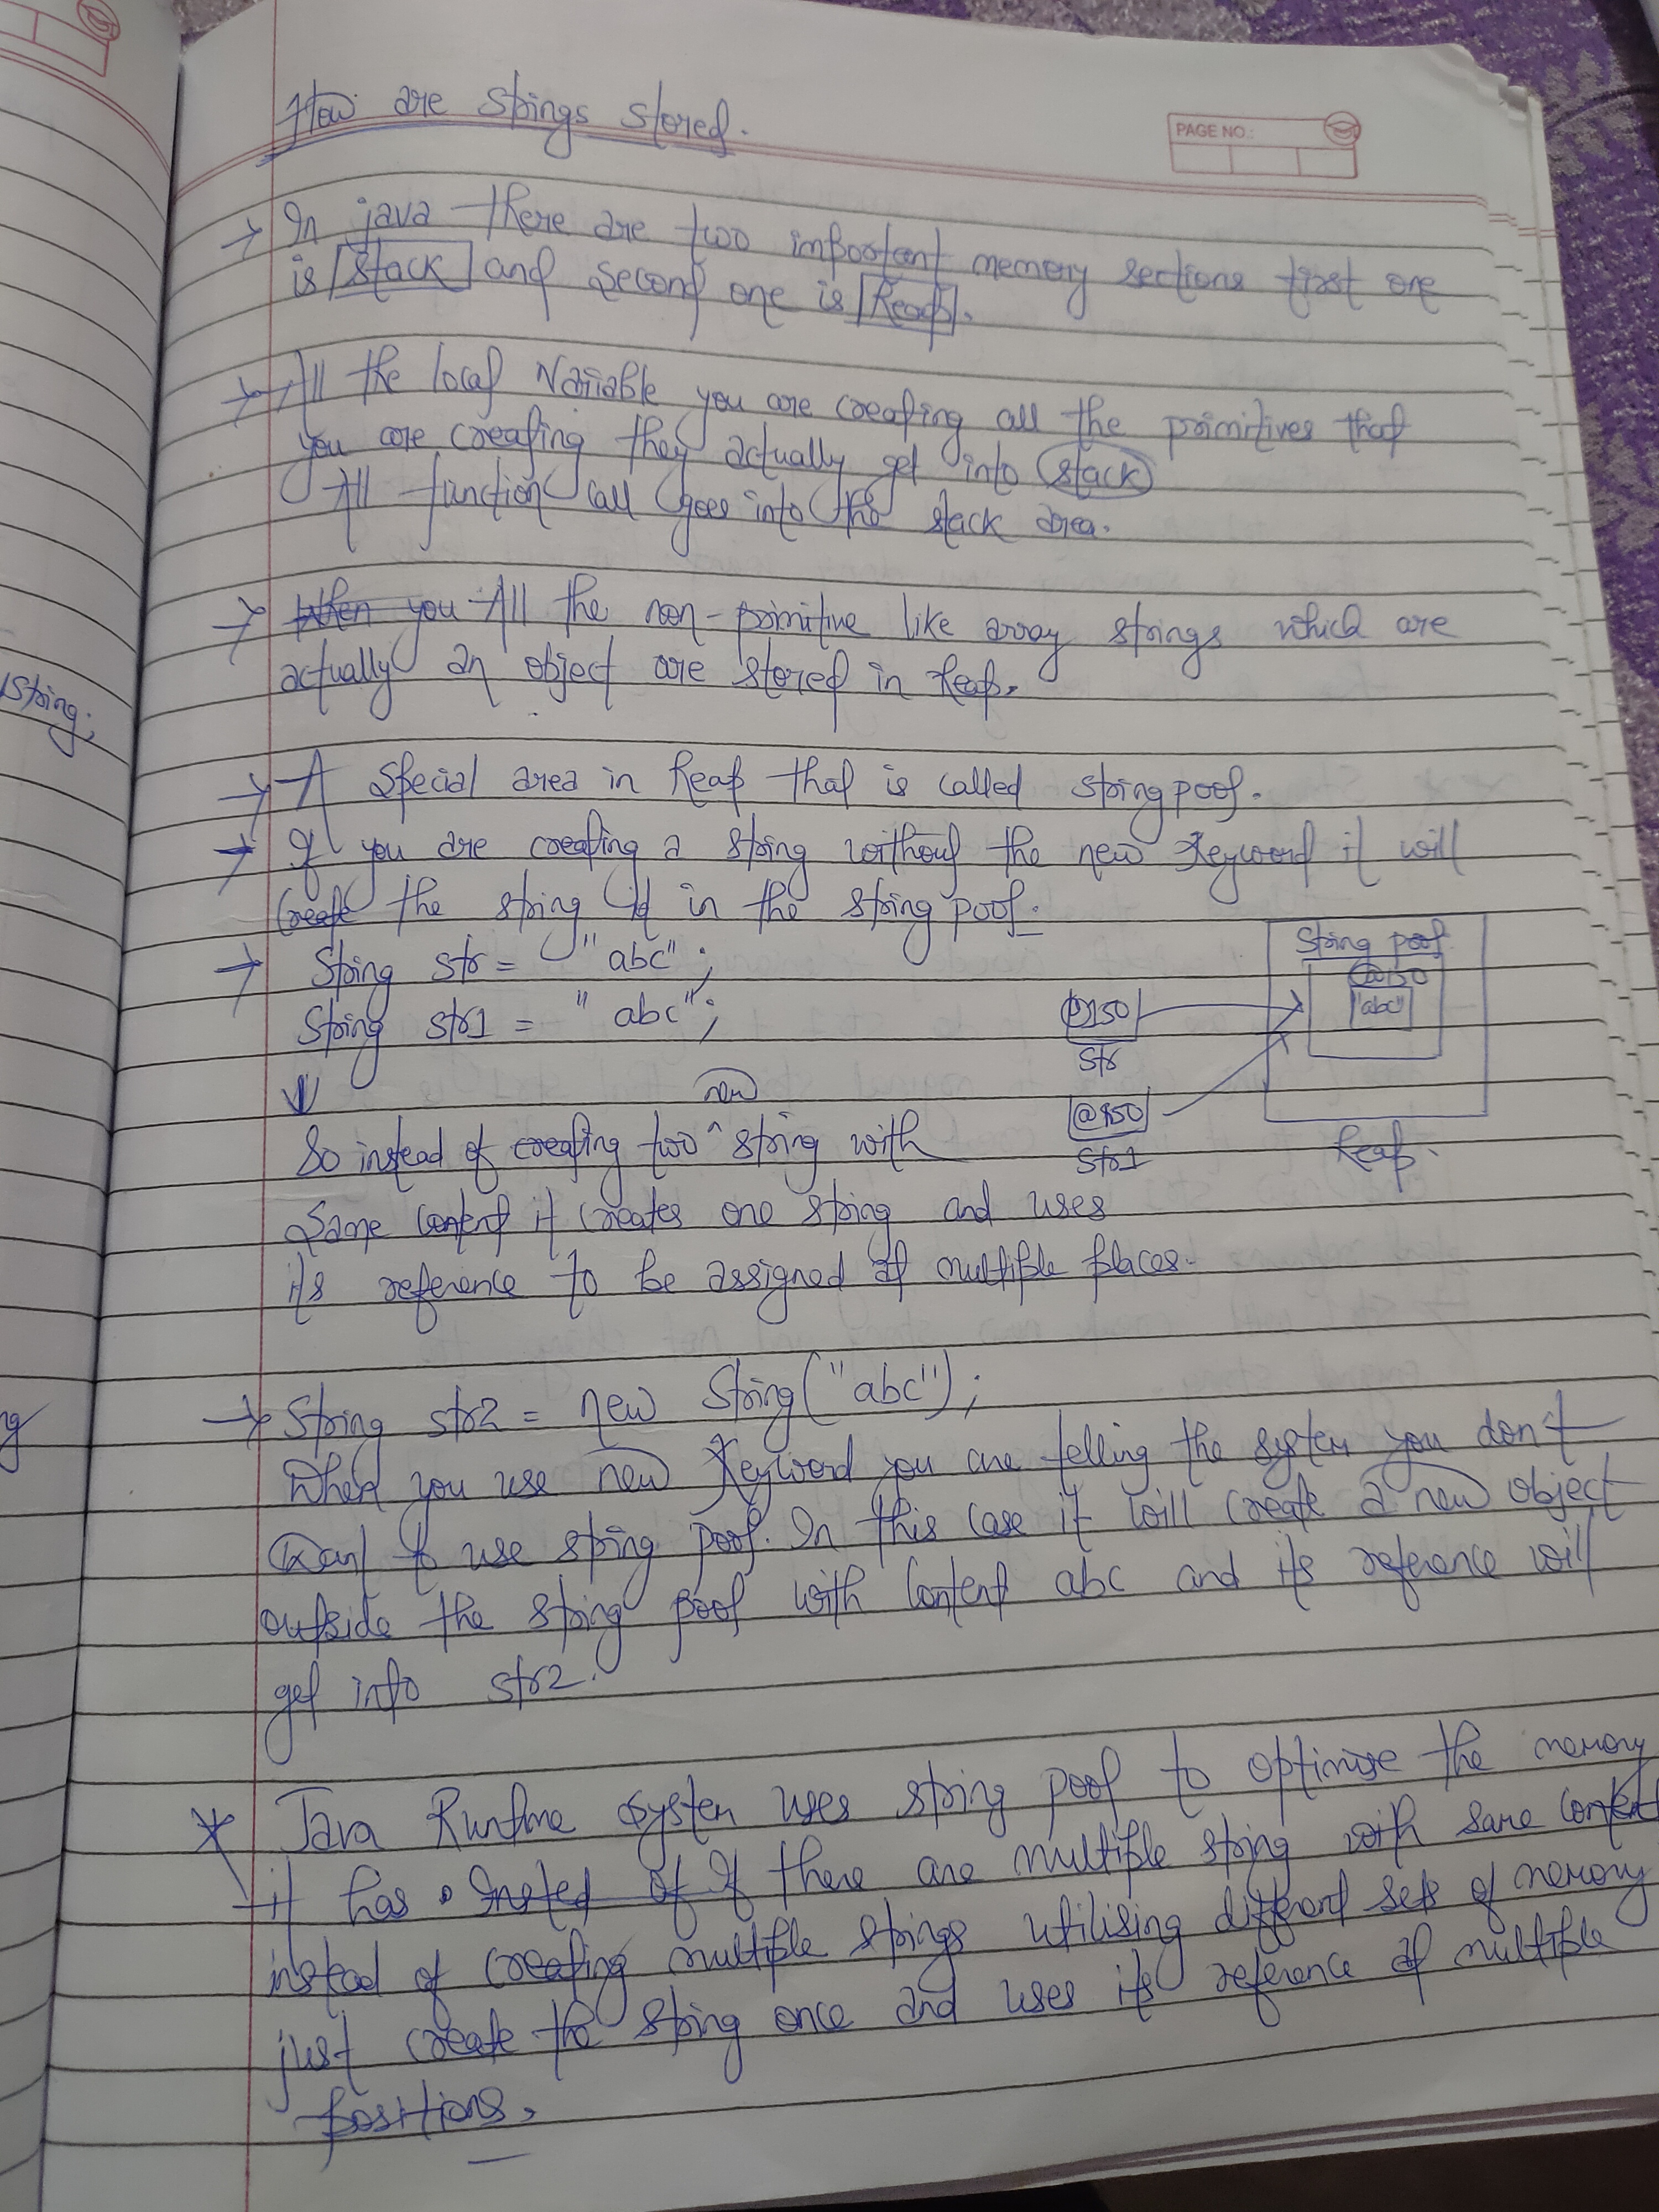 How are strings stored.
PAGE NO.:
→ In java there are two important memory sections first one
is stack and second one is heap.
→ All the local variable you are creating all the primitives that
you are creating they actually get into stack
All function call goes into the stack area.
→ When you All the non-primitive like array strings which are
actually an object are stored in heap.
string;
→ A special area in heap that is called string pool.
→ If you are creating a string without the new keyword it will
create the string in the string pool.
→ String str = "abc";
String str1 = "abc";
String pool
@150
"abc"
@150
str
@150
str1
heap.
new
So instead of creating two ^ string with
same content it creates one string and uses
its reference to be assigned at multiple places.
→ String str2 = new String("abc");
ng
When you use new keyword you are telling the system you don't
want to use string pool. In this case it will create a new object
outside the string pool with content abc and its reference will
get into str2.
* Java Runtime system uses string pool to optimise the memory
it has Insted of If there are multiple string with same content
instead of creating multiple strings utilising different sets of memory
just create the string once and uses its reference at multiple
positions.